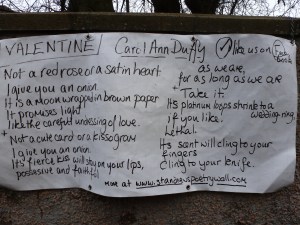 VALENTINE! Carol Ann Duffy like us on Facebook
Not a red rose or a satin heart
I give you an onion
It is a moon wrapped in brown paper
It promises light
like the careful undressing of love.
Not a cute card or a kissogram
I give you an onion.
It's fierce kiss will stay on your lips,
possessive and faithful
as we are,
for as long as we are
Take it.
Its platinum loops shrink to a
wedding-ring,
if you like.
Lethal.
Its scent will cling to your
fingers
Cling to your knife.
more at www.standrewspoetrywall.com